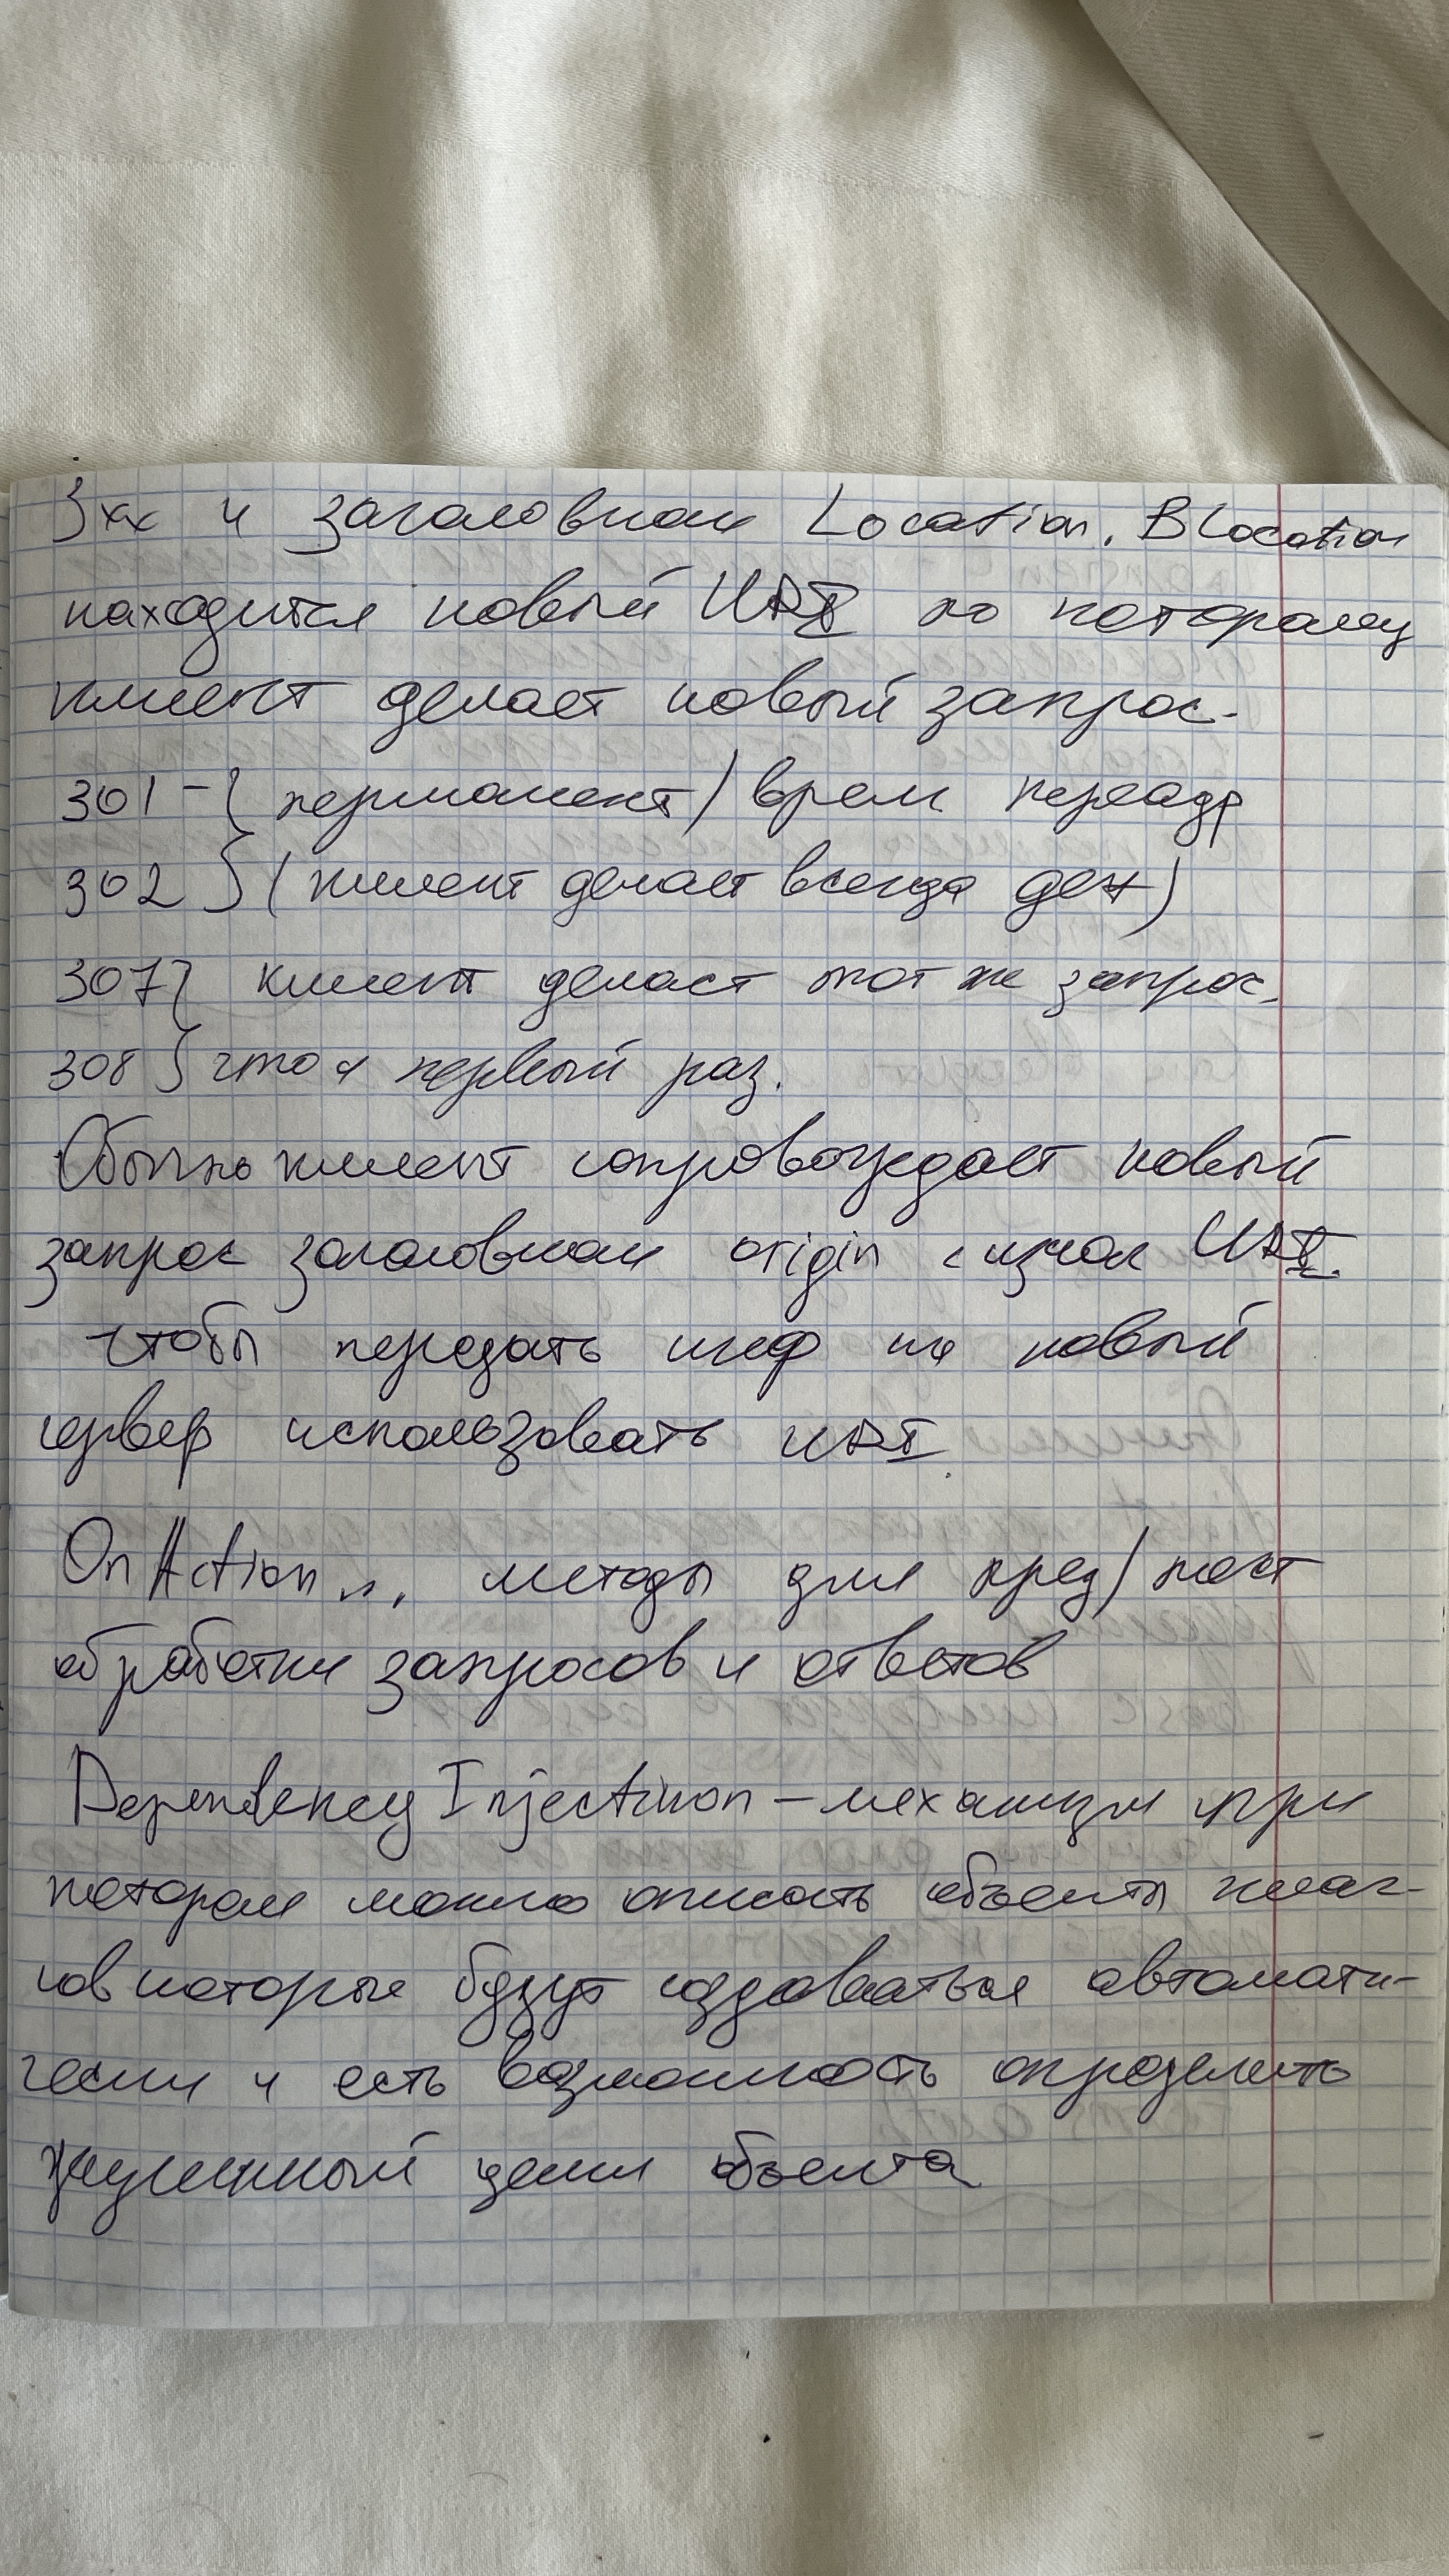 3хх и заголовком Location. В Location
находится новый URI по которому
клиент делает новый запрос.
301 - } перманент/врем переадр
302 } (клиент делает всегда get)
307 } клиент делает тот же запрос,
308 } что и первый раз.
Обычно клиент сопровождает новый
запрос заголовком origin с изнач URI.
чтобы передать инф на новый
сервер использовать URI.
OnAction... методы для пред/пост
обработки запросов и ответов
Dependency Injectinon – механизм при
котором можно описать объекты клас-
сов которые будут создаваться автомати-
чески и есть возможность определить
жизненный цикл объекта